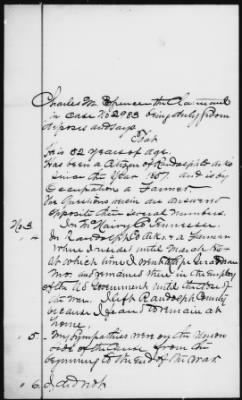 Charles M. Spencer the Claimant
in Case No 2983 being duly sworn
deposes and says
That
He is 52 years of age
Has been a Citizen of Randolph Co
since the Year 1857 and is by
Occupation a Farmer.
The Questions are answered
opposite their several numbers.
No 3 In McNairy Co Tennessee.
" 4 In Randolph Co Ark. a Farmer
where I resided until March
at which time I went to Cape Girardeau
Mo. and remained there in the employ
of the U.S. Government until the close of
the war. I left Randolph County
because I feared to remain at
home.
" 5. My Sympathies were on the Union
side of the cause from the
beginning to the End of the War
" 6. I did not